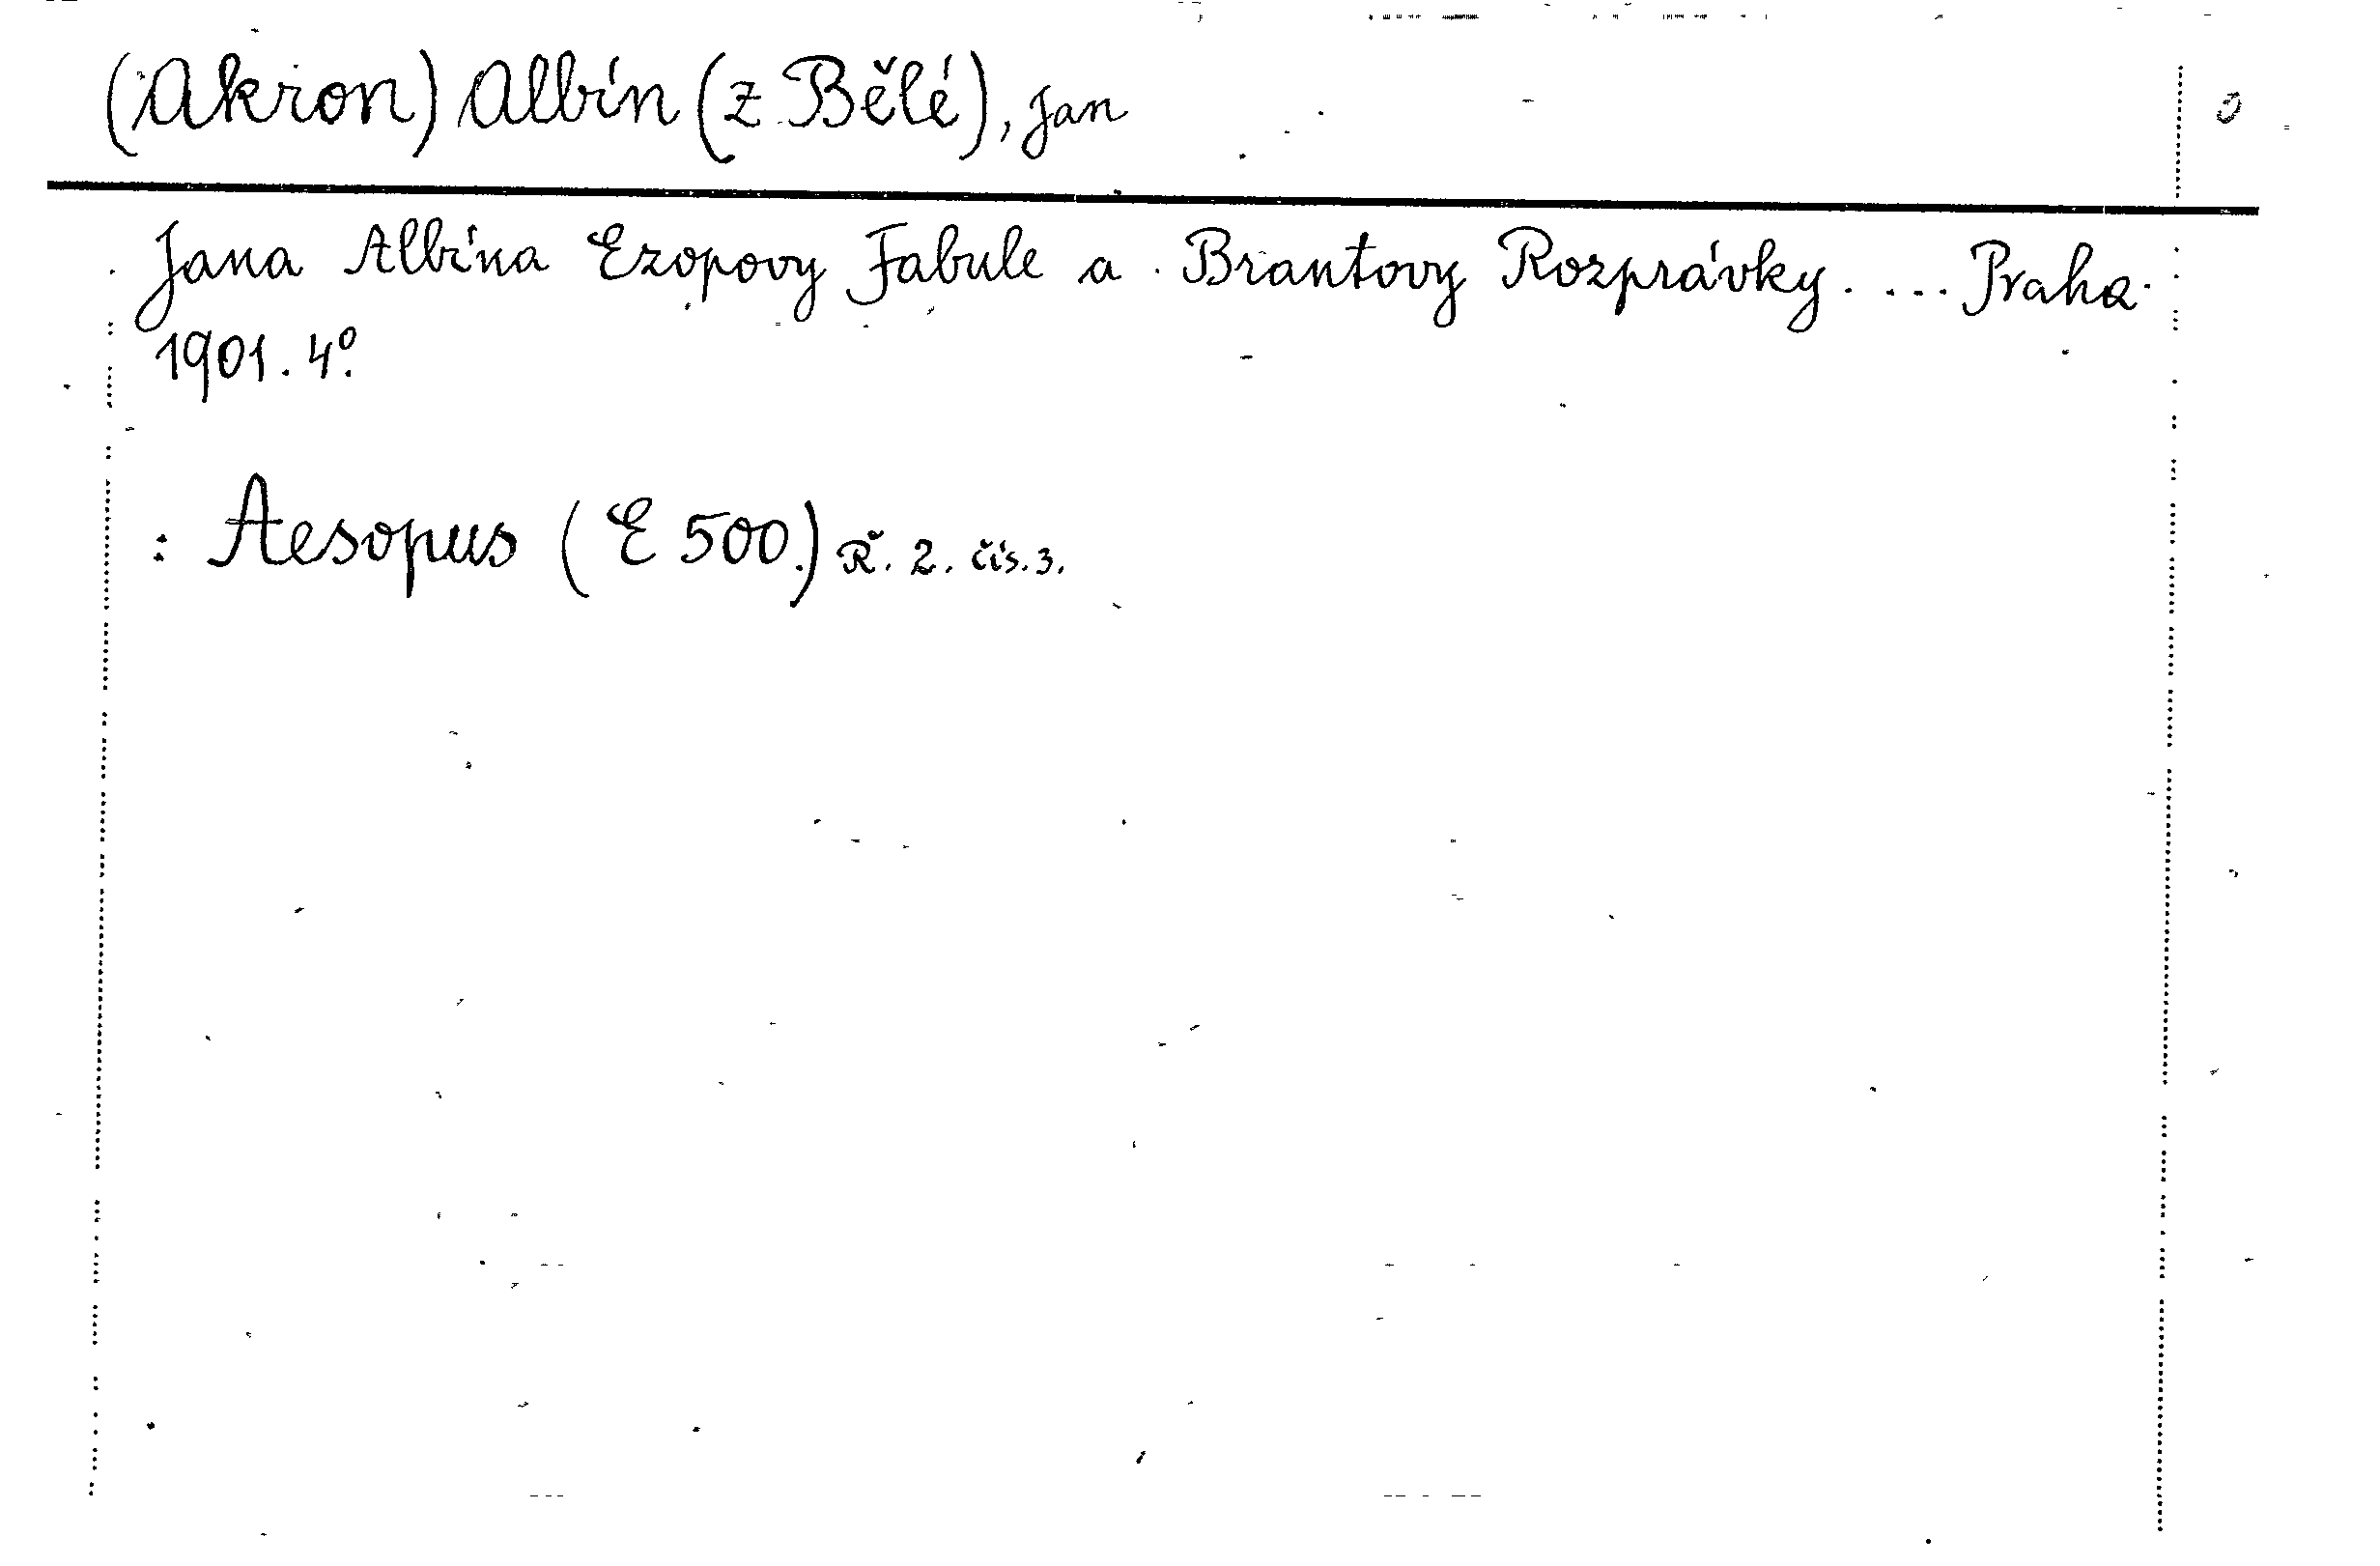 (Akron) Albín (z Bělé), Jan
Jana Albína Ezopovy Fabule a Brantovy Rozprávky. ... Praha
1901. 4º.
: Aesopus (E 500.) Ř. 2. čís. 3.